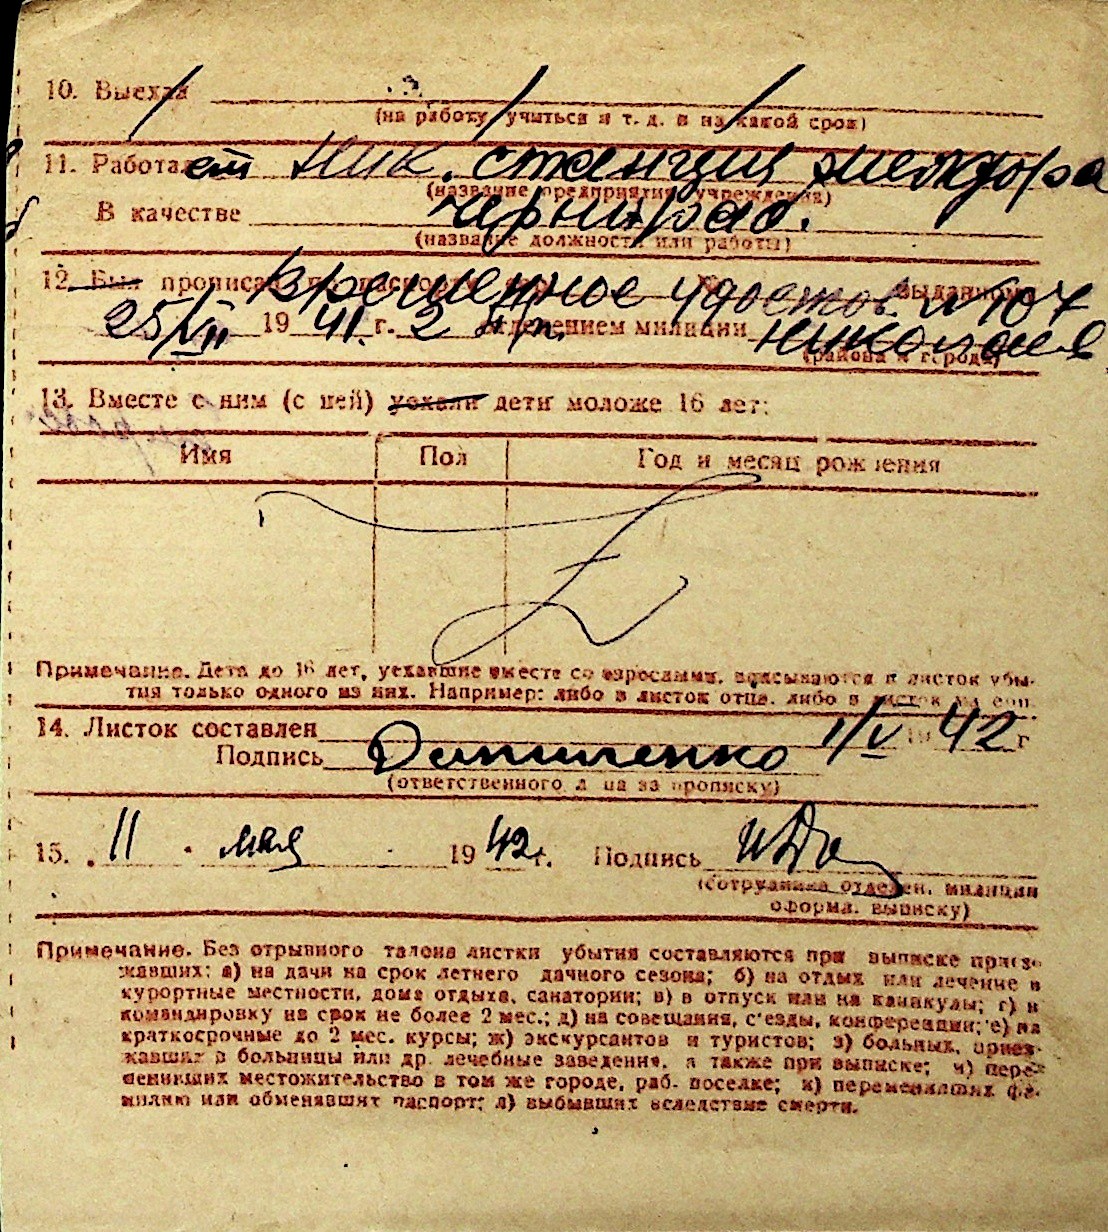 10. Выехал
(на работу, учиться и т. д. и на какой срок)
11. Работает Ник. станции электро
(название предприятия, учреждения)
В качестве чернораб.
(название должности или работы)
12. Был прописан по паспорту временное удостов. № 107 выданному
25/VII 19 41. г. 2 отделением милиции Николаев
(района и города)
13. Вместе с ним (с ней) уехали дети моложе 16 лет:
Имя Пол Год и месяц рождения
Примечание. Дети до 16 лет, уехавшие вместе со взрослыми, вписываются в листок убы-
тия только одного из них. Например: либо в листок отца, либо в листок
14. Листок составлен 1/V 19 42 г
Подпись
(ответственного лица за прописку)
15. 11 мая 19 42 г. Подпись
(сотрудника отделен. милиции
оформ. выписку)
Примечание. Без отрывного талона листки убытия составляются при выписке приез-
жавших: а) на дачи на срок летнего дачного сезона; б) на отдых или лечение в
курортные местности, дома отдыха, санатории; в) в отпуск или на каникулы; г) в
командировку на срок не более 2 мес.; д) на совещания, с'езды, конференции; е) на
краткосрочные до 2 мес. курсы; ж) экскурсантов и туристов; з) больных, приез-
жавших в больницы или др. лечебные заведения, а также при выписке; и) пере-
менивших местожительство в том же городе, раб. поселке; к) переменивших фа-
милию или обменявших паспорт; л) выбывших вследствие смерти.